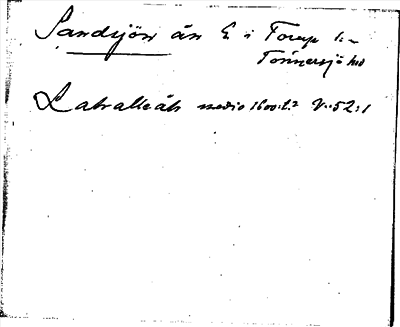 Sandsjön ån E i Torup sn
Tönnersjö hd
Laboalleåk medio 1600:t. V:52:1